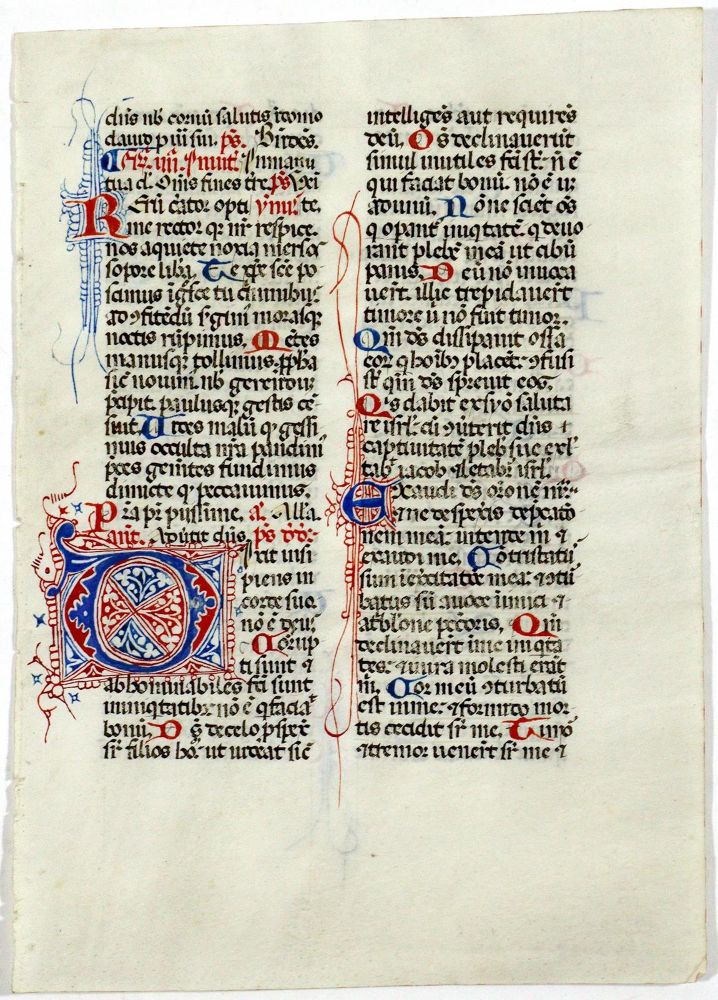 dn̄s nb̄ cornū salutis ī domo
dauid p̄ uīi sui. p̄s. Bn̄dcs̄.
Fr̄. iiij. Inuit̄. In manu
tua d̄. Om̄s fines tr̄e. p̄s Veni
Rerū c̄ator opti ymn̄. te.
Rme rector qr nr̄ respice.
nos a quiete noxia mersos
sopore liba. Te xp̄e sc̄e po-
scimus ignosce tu c̄minibus
ad ɔfitendū surgim̄ morasqꝫ
noctis rūpimus. Mētes
manusqꝫ tollimus. ꝓpha
sic̄ nouim̄. nb̄ gerendū
p̄cipit. paulusqꝫ gestis cē-
suit. Uides malū qͦ gessi
mus occulta nr̄a pandim̄
p̄ces gemētes fundimus
dimicte qͦ peccauimus.
Pr̄a pr̄ pijssime. a. Alla.
Ant̄. Aduertit dn̄s. p̄s
Dixit insi
piens in
corde suo
nō ē deus.
Corrup
ti sunt ⁊
abhominabiles fc̄i sunt
in iniqͣtatibꝫ nō ē q faciat
bonū. Ds̄ de celo ꝓspex̄
sr̄ filios ho͞ı. ut uideat si ē
intelligēs aut requirēs
deū. Om̄s declinauerūt
simul inutiles fc̄i st̄. n̄ ē
qui faciat bonū. nō ē us
ad unū. Nōne scient oms̄
q opant̄ iniqͣtatē. q deuo
rant plebē meā ut cibū
panis. Deū nō inuoca
uer̄t. illic trepidauer̄t
timore ū nō fuit timor.
Qm̄ ds̄ dissipauit ossa
eor̄ q hoībꝫ placēt. ɔfusi
st̄ qm̄ ds̄ spreuit eos.
Qs̄ dabit ex syō saluta
re isrl̄. cū ɔuterit dn̄s
captiuitatē pleb̄ sue exl̄
tab̄ iacob ⁊ letab̄r isrl̄.
Exaudi ds̄ orōne m̄
⁊ ne despexis dep̄catō
nem meā. intende m̄ ⁊
exaudi me. Cōtristatꝰ
sum ī exercitatōe mea. ⁊ ɔtur
batus sū a uoce inīci ⁊
a tb̄lone pecc̄oris. Qm̄
declinauer̄t ī me iniqͣta
tes. ⁊ in ira molesti erāt
m̄. Cor meū ɔturbatū
est in me. ⁊ formido mor
tis cecidit sr̄ me. Timor
⁊ tremor uener̄t sr̄ me ⁊